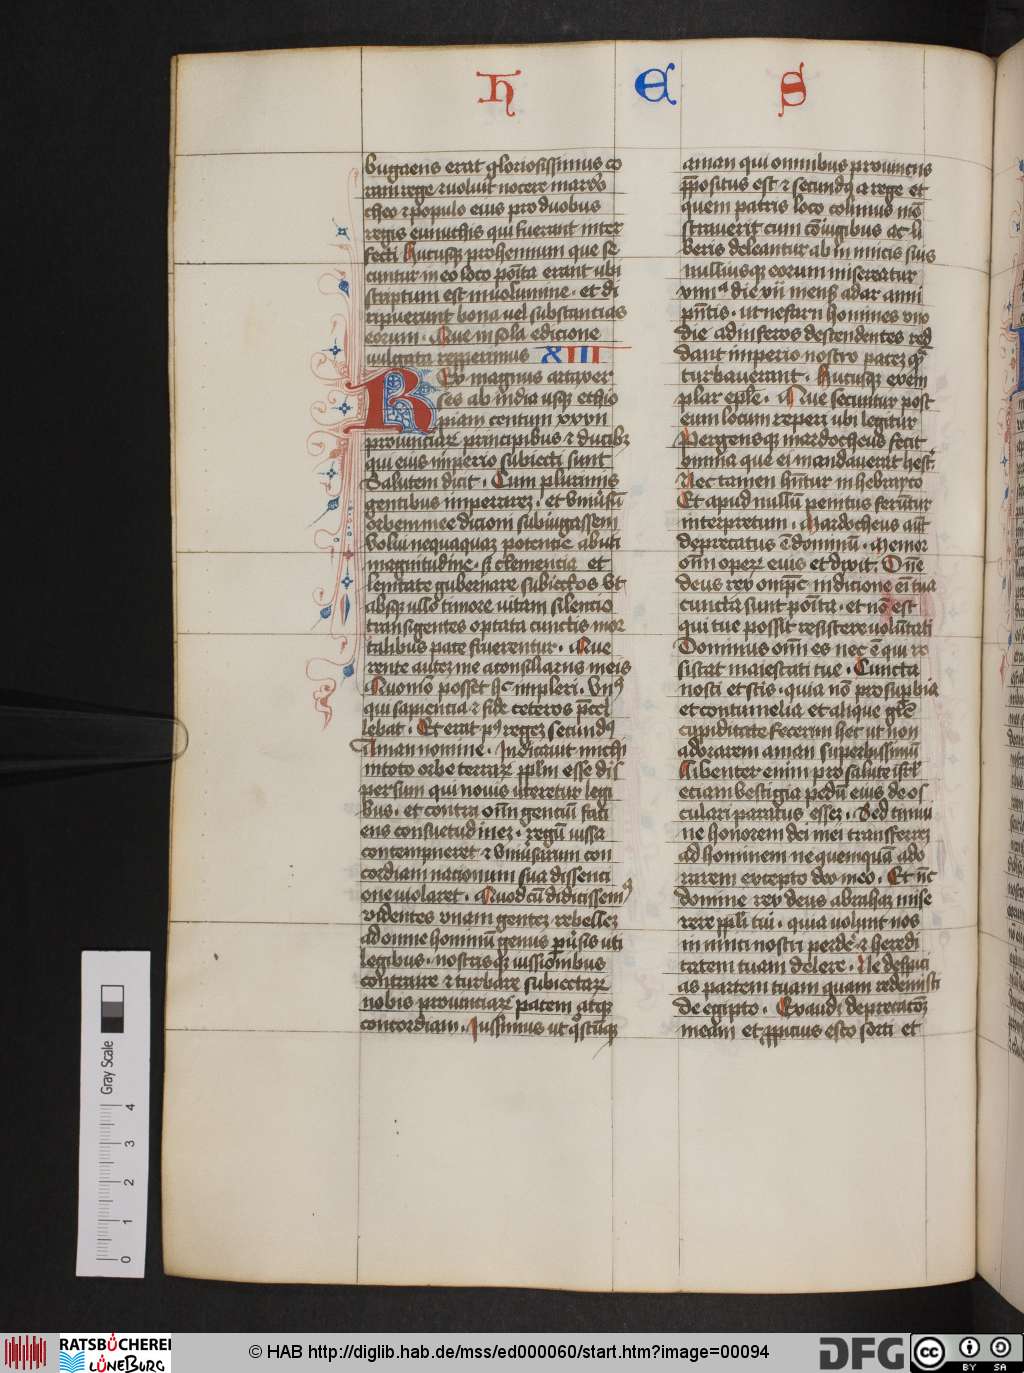 h E S
bugaeus erat gloriosissimus co
ram rege ⁊ voluit nocere mardo
cheo ⁊ populo eius pro duobus
regis eunuchis qui fuerant inter
fecti Hucusqꝫ prohemium que se
cuntur in eo loco po͞ita erant ubi
scriptum est in volumine · et di
ripuerunt bona vel substantias
eorum · Que in sola edicione
vulgata repperimus XIII
Rex magnus artaxer
ses ab india usqꝫ ethio
piam centum xxvii
prouinciaꝝ principibus ⁊ ducibꝫ
qui eius imperio subiecti sunt
Salutem dicit · Cum plurimis
gentibus imperarez · et vniu͛su͞
orbem mee dicioni subiugassem
volui nequaquaz potentie abuti
magnitudine · sꝫ clemencia et
lenitate gubernare subiectos vt
absqꝫ ullo timore vitam silencio
transigentes optata cunctis mor
talibus pace fruerentur · Que
rente autez me a consiliariis meis
Quomo͞ posset h͞ impleri · Vnꝰ
qui sapientia ⁊ fide ceteros p͞cel
lebat · Et erat pꝰ regez secundꝰ
Aman nomine · Indicauit michi
in toto orbe terraꝝ pp͞lm esse dis
persum qui nouis uteretur legi
bus · et contra om͞n gentiu͞ faci
ens consuetudinez · regu͞ iussa
contempneret ⁊ vniu͛saruꝫ con
cordiam nacionum sua dissenci
one violaret · Quod cu͞ didicissemꝰ
videntes vnam gentez rebellez
ad omne hominu͞ genus p͛u͛sis uti
legibus · nostrisqꝫ iussionibus
contraire ⁊ turbare subiectaꝝ
nobis prouinciaꝝ pacem atqꝫ
concordiam · Iussimus ut q͛scu͞qꝫ
aman qui omnibus prouinciis
p͞positus est ⁊ secundꝰ a rege et
quem patris loco colimus mo͞
strauerit cum co͞iugibus ac li
beris deleantur ab inimicis suis
nulliusqꝫ eorum misereatur
xiiiiᵃ die xii mens͛ adar anni
p͞ntis · ut nefarii homines vno
die ad inferos descendentes red
dant imperio nostro pacez qᵃ͞
turbauerant · Hucusqꝫ exem
plar ep͞le · Que secuntur post
eum locum reperi ubi legitur
Pergensqꝫ mardocheus fecit
omnia que ei mandauerat hest͛
Nec tamen h͞ntur in hebrayco
Et apud nullu͞ penitus feru͞tur
interpretum · Mardocheus au͞t
deprecatus e͞ dominu͞ · Memor
om͞ opeꝝ eius et dixit · D͞ne
deus rex omp͞c in dicione e͞i tua
cuncta sunt po͞ita · et no͞ est
qui tue possit resistere volu͞tati
Dominus om͞ es nec e͞ qui re
sistat maiestati tue · Cuncta
nosti et scis · quia no͞ pro sup͛bia
et contumelia et alique gl͞e
cupiditate fecerim hec ut non
adorarem aman superbissimu͞
Libenter enim pro salute isr͞l
eciam vestigia pedu͞ eius de os
culari paratus essez · Sed timui
ne honorem dei mei transferrez
ad hominem ne quemqua͞ ado
rarem excepto deo meo · Et nu͞c
domine rex deus abrahaꝫ mise
rere pp͞li tui · quia volunt nos
inimici nostri perde͛ ⁊ heredi
tatem tuam delere · Ne despici
as partem tuam quam redemisti
de egipto · Exaudi deprecato͞ꝫ
meam et p͛picius esto sorti et
Gray Scale
0 1 2 3 4
RATSBÜCHEREI
LÜNEBURG
© HAB http://diglib.hab.de/mss/ed000060/start.htm?image=00094
DFG
cc BY SA